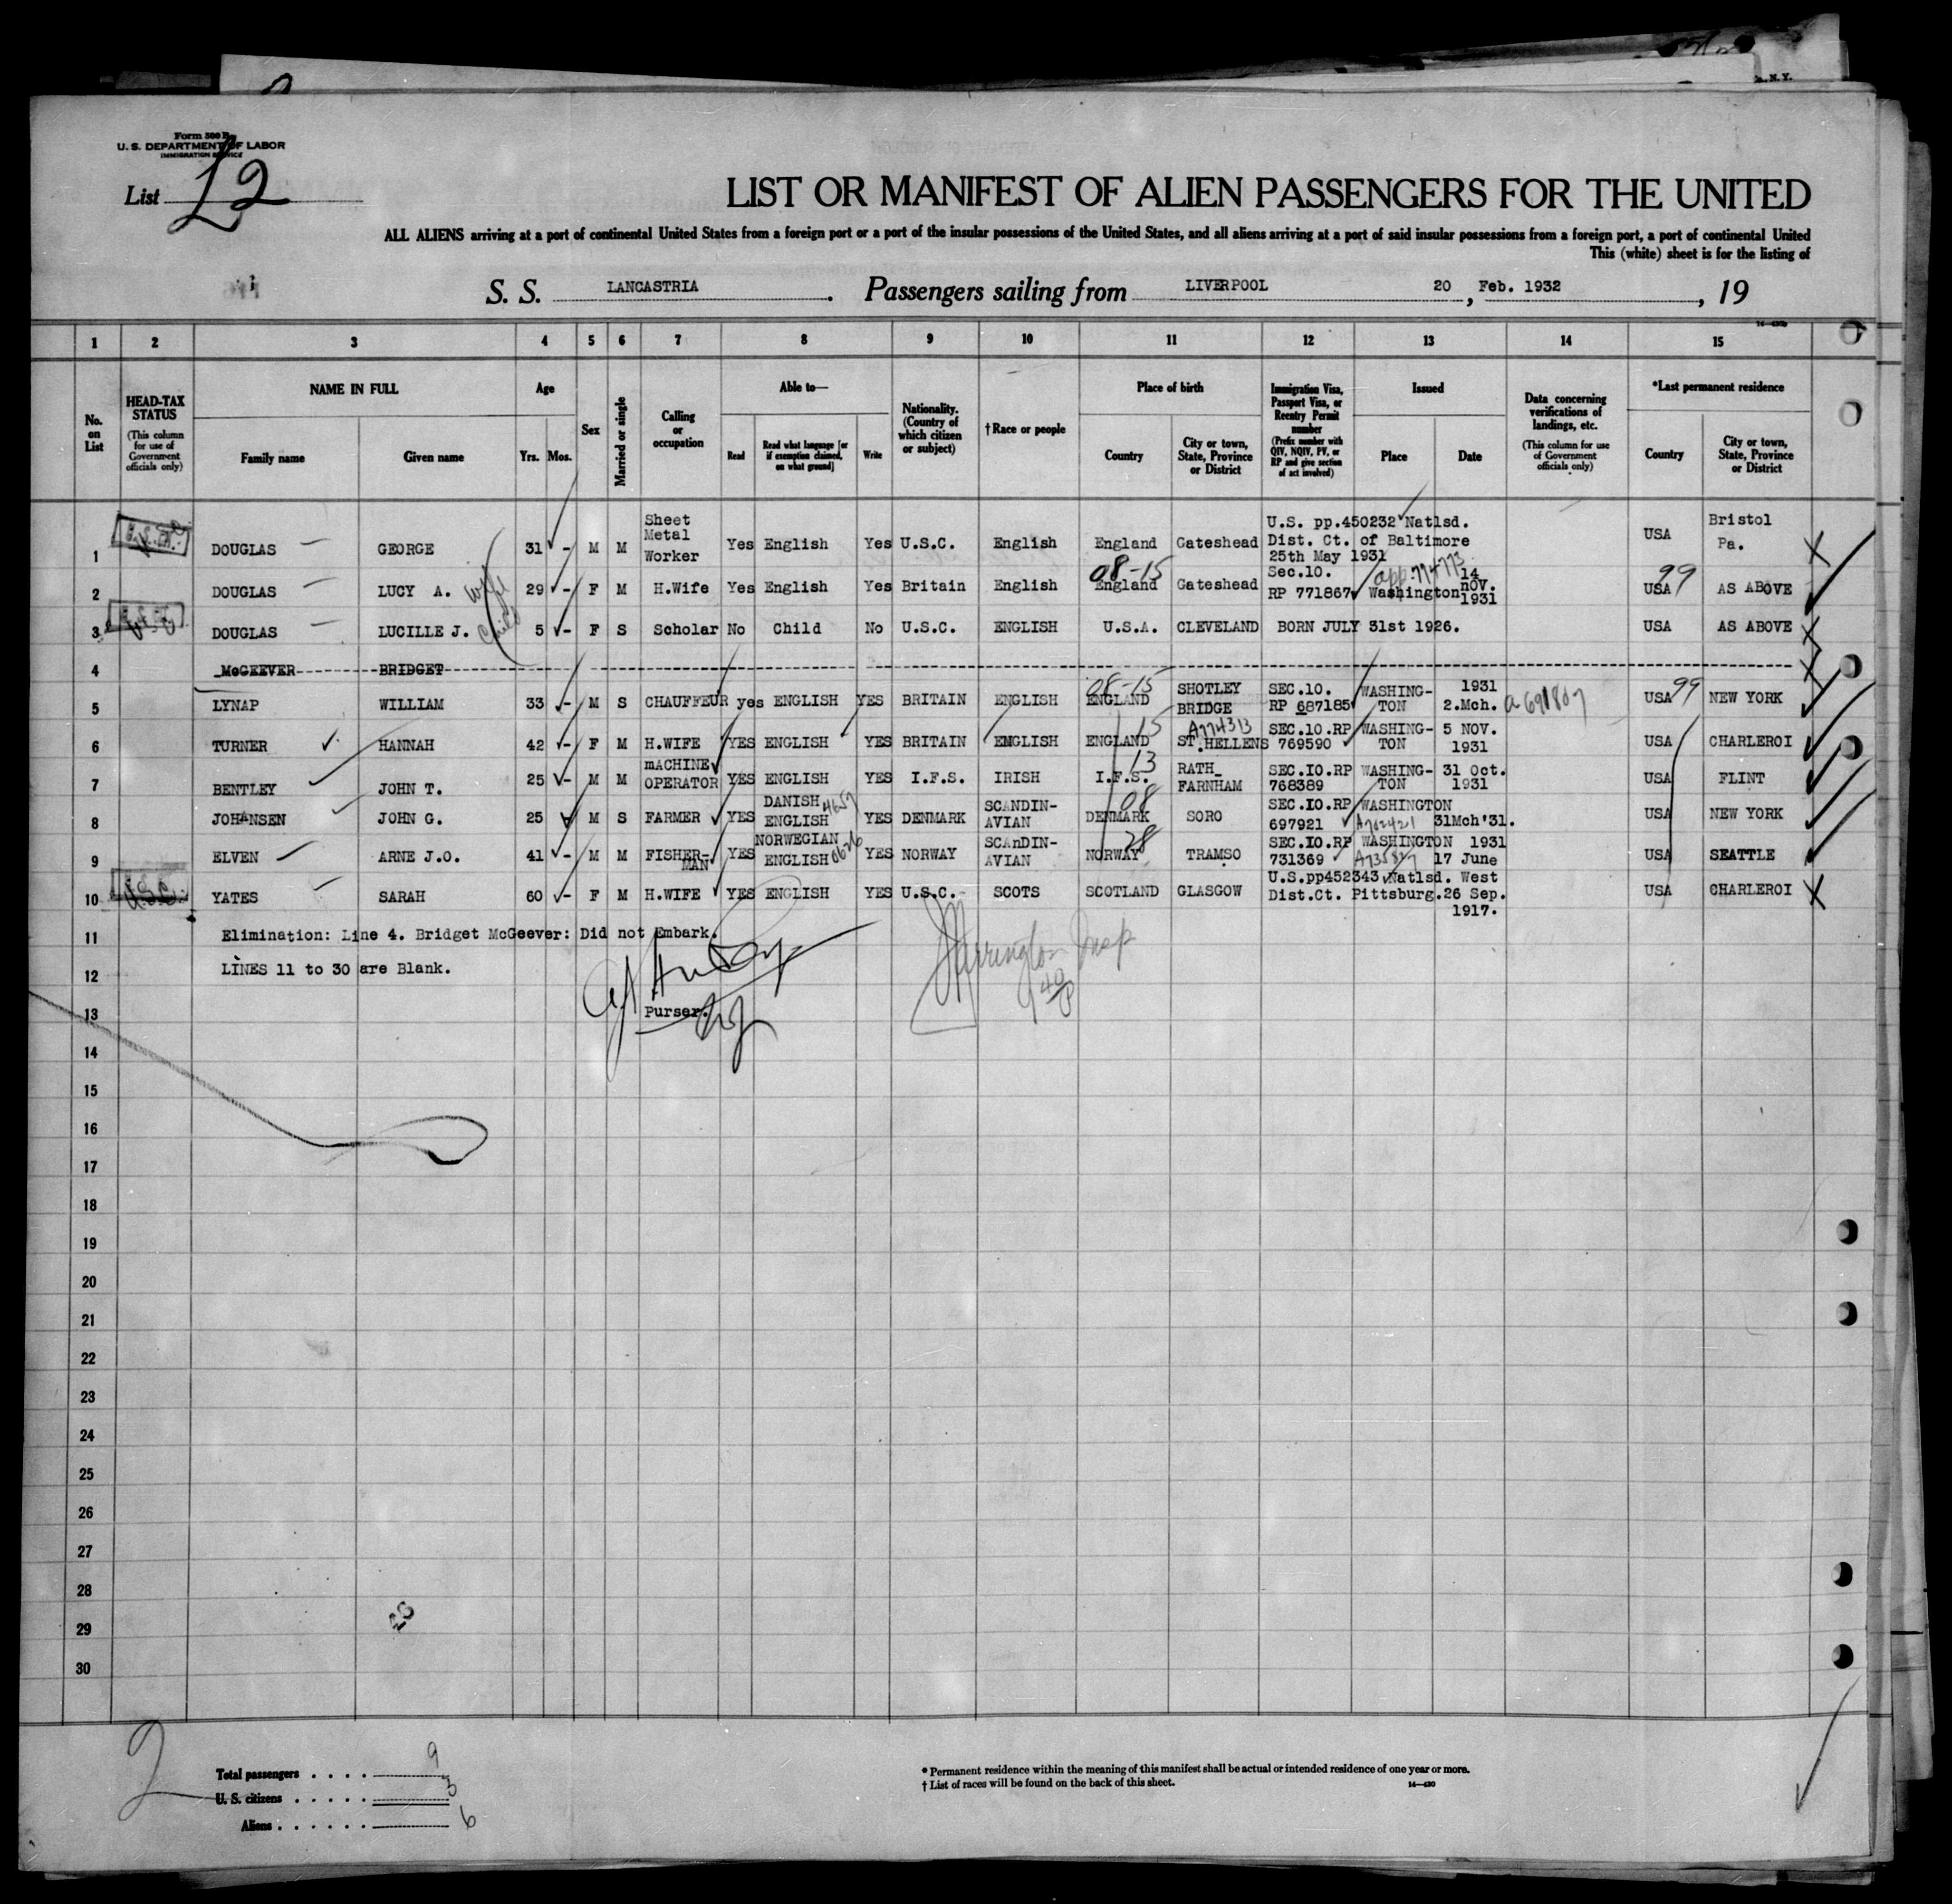 N.Y.
Form 500 B
U. S. DEPARTMENT OF LABOR
IMMIGRATION SERVICE
List 12
LIST OR MANIFEST OF ALIEN PASSENGERS FOR THE UNITED
ALL ALIENS arriving at a port of continental United States from a foreign port or a port of the insular possessions of the United States, and all aliens arriving at a port of said insular possessions from a foreign port, a port of continental United
This (white) sheet is for the listing of
S. S. LANCASTRIA. Passengers sailing from LIVERPOOL 20, Feb. 1932, 19
1 2 3 4 5 6 7 8 9 10 11 12 13 14 15
No. on List
HEAD-TAX STATUS (This column for use of Government officials only)
NAME IN FULL
Family name
Given name
Age
Yrs. Mos.
Sex
Married or single
Calling or occupation
Able to—
Read
Read what language [or if exemption claimed, on what ground]
Write
Nationality. (Country of which citizen or subject)
†Race or people
Place of birth
Country
City or town, State, Province or District
Immigration Visa, Passport Visa, or Reentry Permit number (Prefix number with QIV, NQIV, PV, or RP and give section of act involved)
Issued
Place
Date
Data concerning verifications of landings, etc. (This column for use of Government officials only)
*Last permanent residence
Country
City or town, State, Province or District
1 DOUGLAS GEORGE 31 - M M Sheet Metal Worker Yes English Yes U.S.C. English England Gateshead U.S. pp.450232 Natlsd. Dist. Ct. of Baltimore 25th May 1931 USA Bristol Pa.
2 DOUGLAS LUCY A. wife 29 - F M H.Wife Yes English Yes Britain English 08-15 England Gateshead Sec.10. RP 771867 app. 774773 Washington 14 nov. 1931 USA 99 AS ABOVE
3 DOUGLAS LUCILLE J. child 5 - F S Scholar No Child No U.S.C. ENGLISH U.S.A. CLEVELAND BORN JULY 31st 1926. USA AS ABOVE
4 McGEEVER BRIDGET
5 LYNAP WILLIAM 33 - M S CHAUFFEUR yes ENGLISH YES BRITAIN ENGLISH 08-15 ENGLAND SHOTLEY BRIDGE SEC.10. RP 687185 WASHING- TON 1931 2.Mch. a 691807 USA 99 NEW YORK
6 TURNER HANNAH 42 - F M H.WIFE YES ENGLISH YES BRITAIN ENGLISH ENGLAND 15 A774313 ST.HELLENS SEC.10.RP 769590 WASHING- TON 5 NOV. 1931 USA CHARLEROI
7 BENTLEY JOHN T. 25 - M M mACHINE OPERATOR YES ENGLISH YES I.F.S. IRISH I.F.S. 13 RATH_ FARNHAM SEC.IO.RP 768389 WASHING- TON 31 Oct. 1931 USA FLINT
8 JOHANSEN JOHN G. 25 M S FARMER YES DANISH ENGLISH YES DENMARK SCANDIN- AVIAN DENMARK 08 SORO SEC.IO.RP 697921 WASHINGTON A702421 31Mch'31. USA NEW YORK
9 ELVEN ARNE J.O. 41 - M M FISHER- MAN YES NORWEGIAN ENGLISH YES NORWAY SCAnDIN- AVIAN NORWAY 28 TRAMSO SEC.IO.RP 731369 WASHINGTON 1931 17 June USA SEATTLE
10 U.S.C. YATES SARAH 60 - F M H.WIFE YES ENGLISH YES U.S.C. SCOTS SCOTLAND GLASGOW U.S.pp452343 Natlsd. West Dist.Ct. Pittsburg.26 Sep. 1917. USA CHARLEROI
11 Elimination: Line 4. Bridget McGeever: Did not Embark.
12 LINES 11 to 30 are Blank.
13 Purser.
14
15
16
17
18
19
20
21
22
23
24
25
26
27
28
29
30
Total passengers . . . . 9
U. S. citizens . . . . . 3
Aliens . . . . . . 6
2
* Permanent residence within the meaning of this manifest shall be actual or intended residence of one year or more.
† List of races will be found on the back of this sheet.
14—430